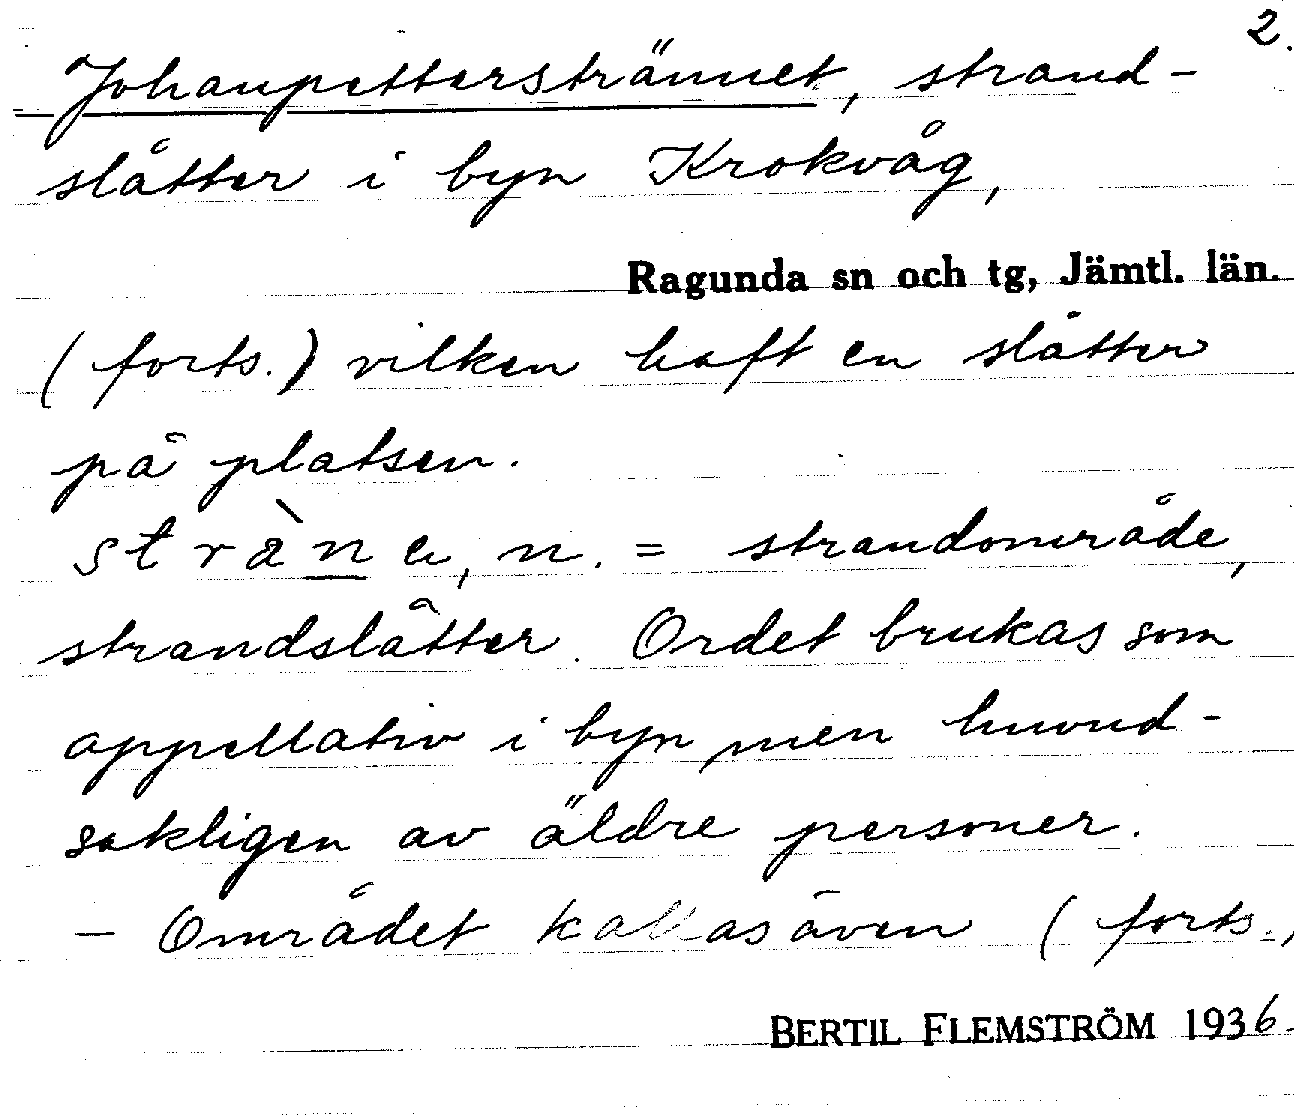 2.
Johanpetterstrännet, strand-
slåtter i byn Krokvåg,
Ragunda sn och tg, Jämtl. län.
(forts.) vilken haft en slåtter
på platsen.
, n. = strandområde,
strandslåtter. Ordet brukas som
appellativ i byn, men huvud-
sakligen av äldre personer.
– Området kallas även (forts.)
BERTIL FLEMSTRÖM 1936.